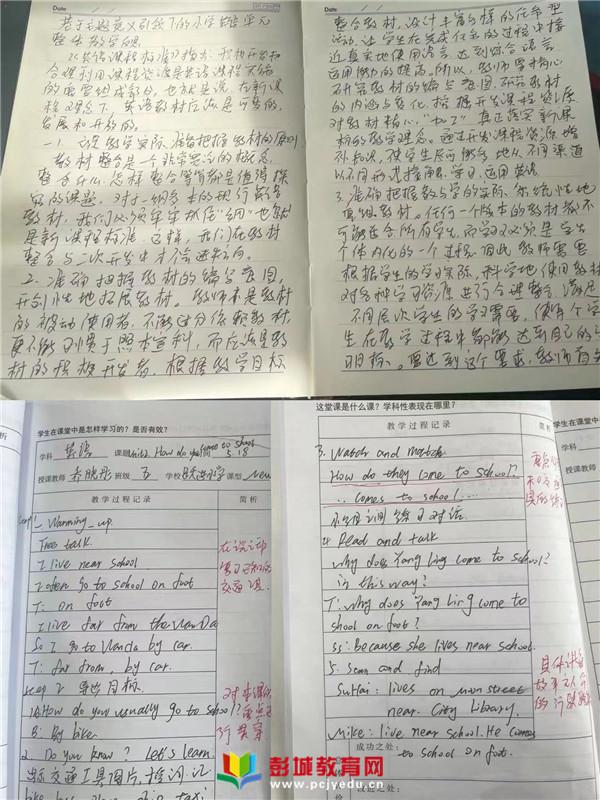 Date
基于主题意义引领下的小学英语单元
整体教学实践
《英语课程标准》指出：积极开发和
合理利用课程资源是英语课程实施
的重要组成部分。也就是说，在新课
程理念下，英语教材应该是可变的、
发展和开放的。
教材整合是一个非常宽泛的概念，
整合什么，怎样整合等都是值得探
究的课题。对于一纲多本的现行英语
教材，我们必须牢牢抓住"纲"也就
是新课程标准。这样，我们在教材
整合与二次开发中才不会迷失方向。
2. 准确把握教材的编写意图，
开创性地拓展教材。教师不是教材
的被动使用者，不能过分依赖教材，
更不能习惯于照本宣科，而应该是教
材的积极开发者，根据教学目标
整合教材，设计丰富多样的任务型
活动，让学生在完成任务的过程中接
近真实地使用语言，达到综合语言
运用能力的提高。所以，教师要精心
研究教材的编写意图，研究教材
的内涵与变化，挖掘开发课程资源，
对教材精心"加工"，真正落实新课
标的教学理念。通过开发课程资源增
补知识，使学生尽可能多地从不同渠道
以不同形式接触、学习、运用英语。
3. 准确把握教与学的实际，系统性地
重组教材。任何一个版本的教材都不
可能适合所有学生，而学习必定是学生
个体内化的一个过程。因此，教师需要
根据学生的学习实际，科学地使用教材
对各种学习资源进行合理整合，满足
不同层次学生的学习需要，使每个学
生在教学过程中都能达到自己的学
习目标。要达到这个要求，教师首先
学生在课堂中是怎样学习的？是否有效？
学科 英语 课题 How do you come to school 5.18
授课教师 班级 五 学校 课型 New
教学过程记录 简析
Step 1. Warming up
Free talk
I live near school
I often go to school on foot
T: on foot
I live far from the WanDa
So I go to Wanda by car.
T: far from, by car.
step 2 导出目标
A: How do you usually go to school?
B: By bike
2. Do you know? Let's learn
出示交通工具图片，
bike
这堂课是什么课？学科性表现在哪里？
教学过程记录 简析
3. Watch and match
How do they come to school?
... comes to school ...
小组训练练习对话
4 Read and talk
Why does Yang Ling come to school?
in this way?
T: Why does Yang Ling come to
shool on foot?
Ss: Because she lives near school.
5. Scan and find
SuHai: lives on Moon street
near City Library.
Mike: live near school. He comes
成功之处：
to school on foot.
学生在
学科
授课教
彭城教育网
www.pcjyedu.cn